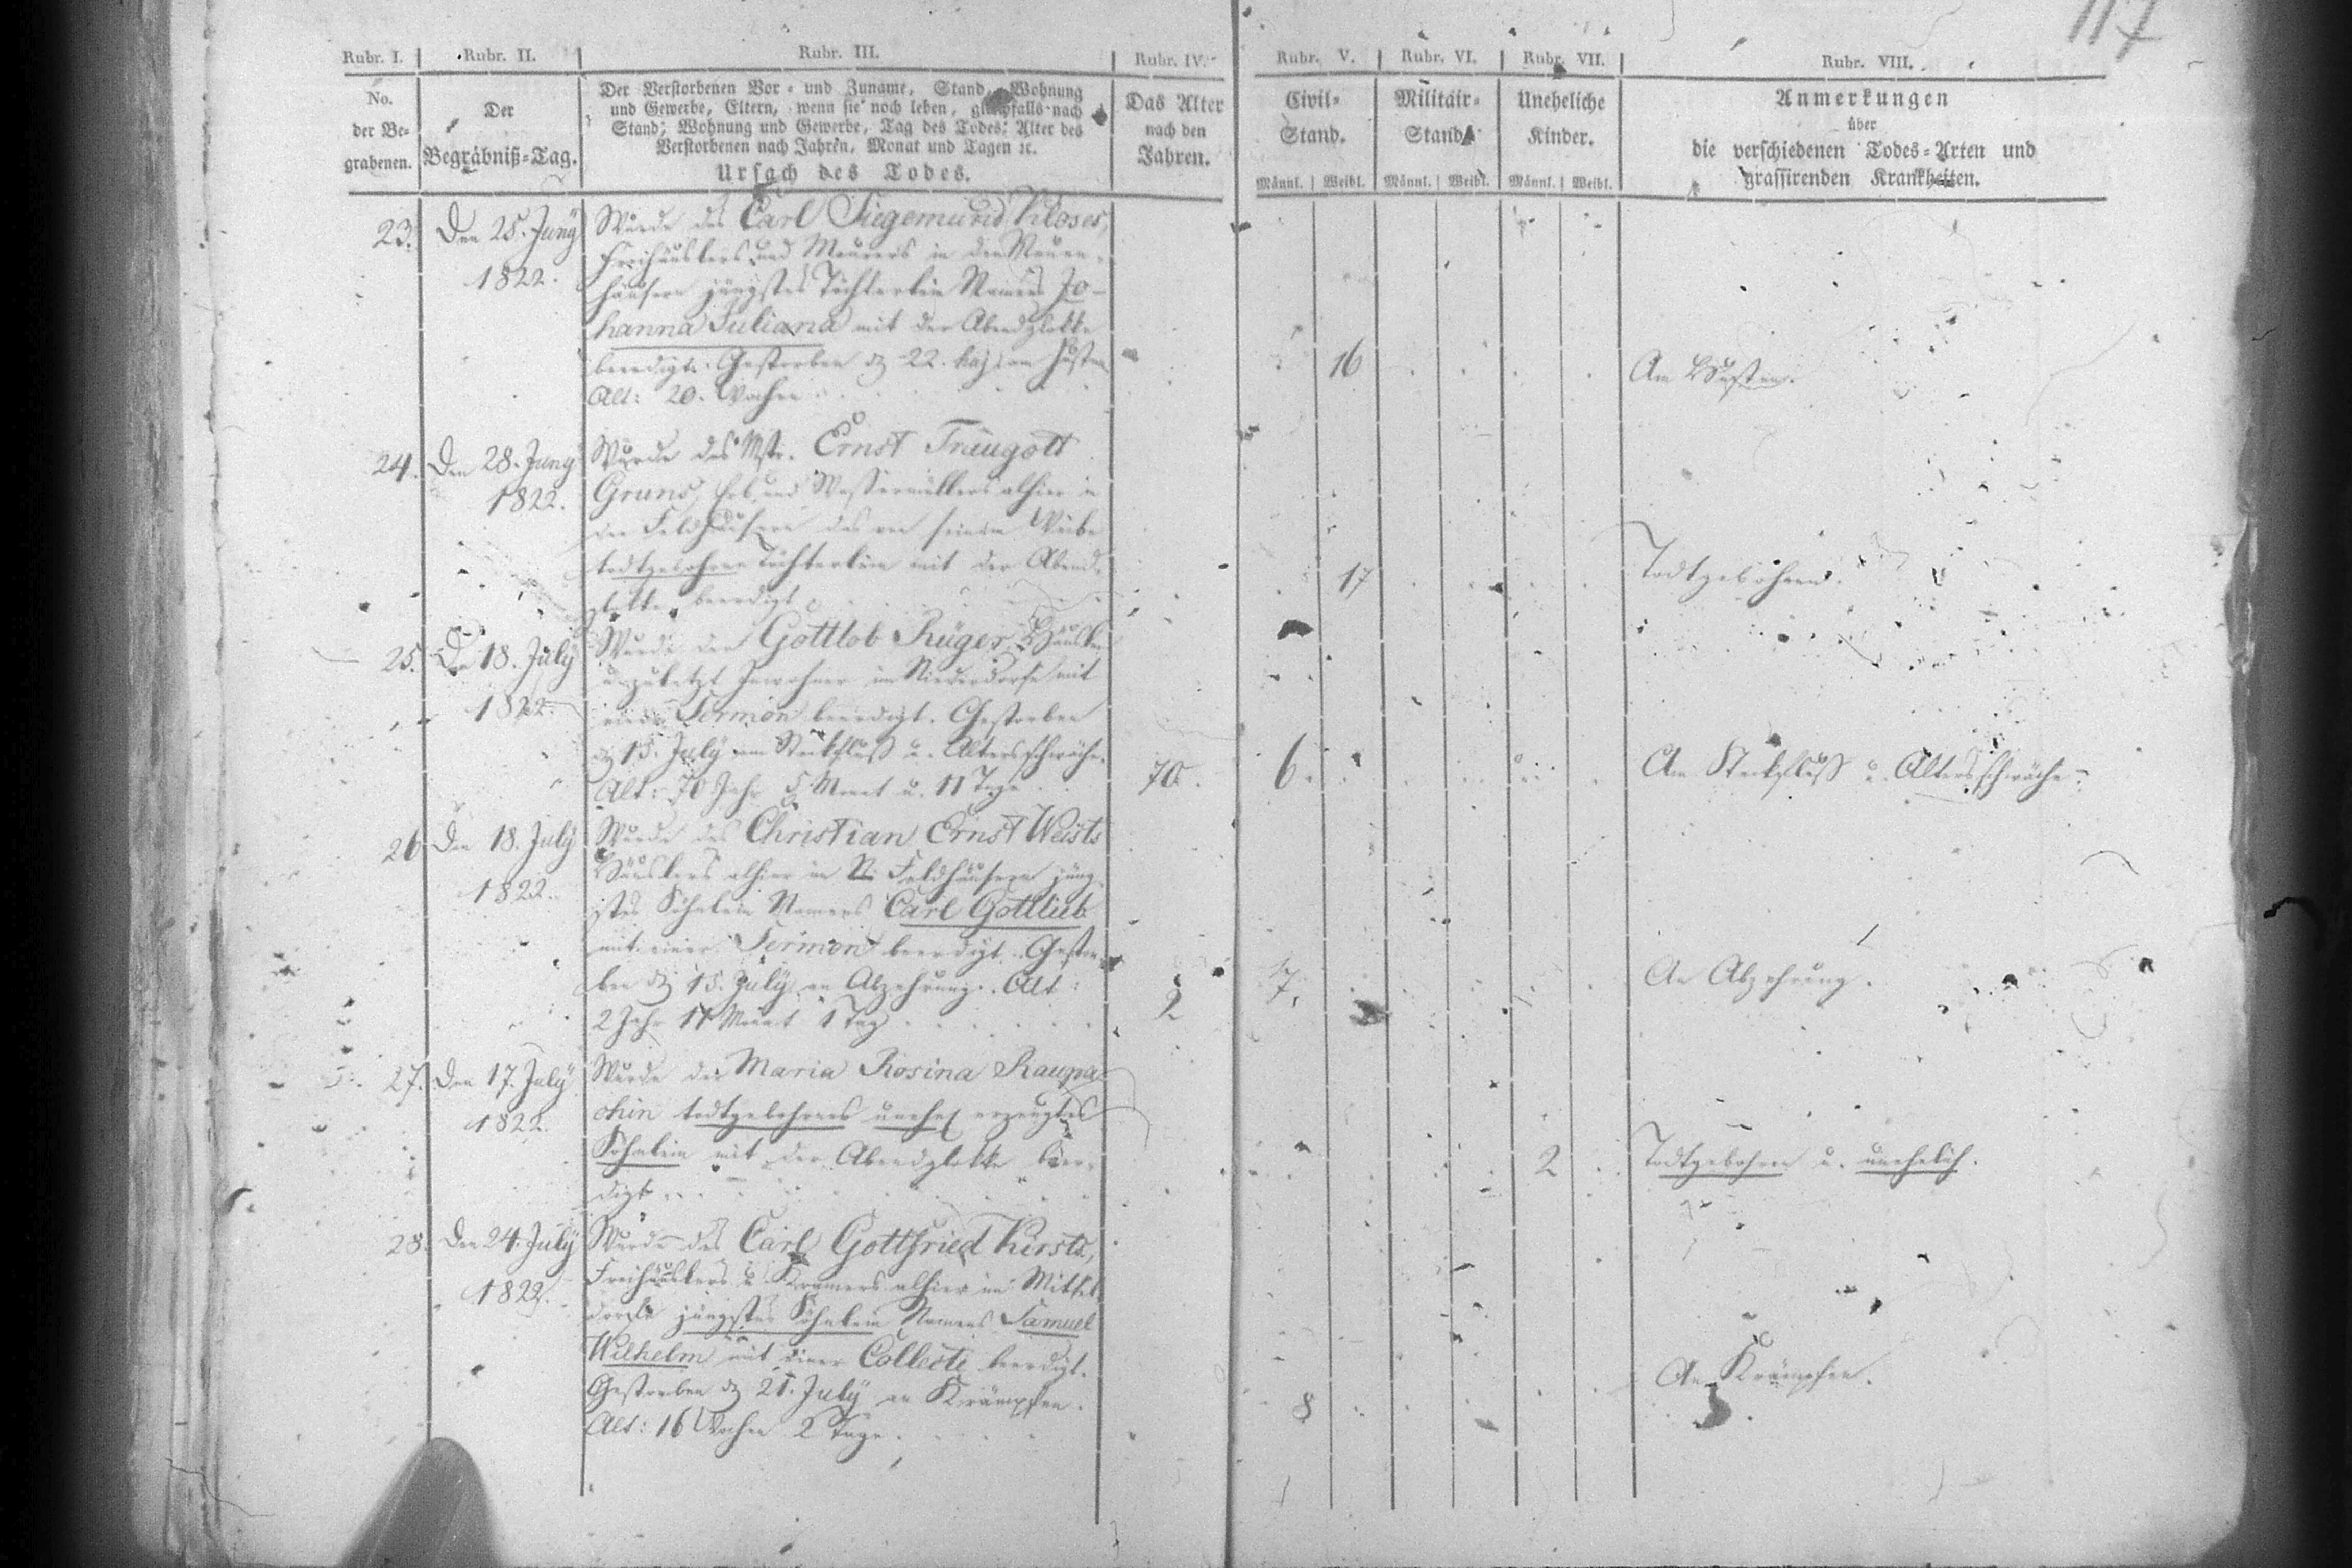 117
Rubr. I. Rubr. II. Rubr. III. Rubr. IV. Rubr. V. Rubr. VI. Rubr. VII. Rubr. VIII.
No.
der Be-
grabenen.
Der
Begräbniß-Tag.
Der Verstorbenen Vor- und Zuname, Stand, Wohnung
und Gewerbe, Eltern, wenn sie noch leben, gleichfalls nach
Stand, Wohnung und Gewerbe, Tag des Todes, Alter des
Verstorbenen nach Jahren, Monat und Tagen ꝛc.
Ursach des Todes.
Das Alter
nach den
Jahren.
Civil-
Stand.
Männl. Weibl.
Militair-
Stand.
Männl. Weibl.
Uneheliche
Kinder.
Männl. Weibl.
Anmerkungen
über
die verschiedenen Todes-Arten und
grassirenden Krankheiten.
23. Den 25. Juny
1822.
Wurde des Carl Siegemund Kloses,
Freihäuslers und Maurers in den
häusern jüngstes Töchterlein Namens Jo-
hanna Juliana mit der Abendglokke
beerdigt. Gestorben 22. am Husten
Alt: 20. Wochen
16
Am Husten.
24. Den 28. Juny
1822.
Wurde des Mstr. Ernst Traugott
Gruns, Erb und Wassermüllers alhier in
den Feldhäusern das von seinem Weibe
todtgebohrne Töchterlein mit der Abend-
glokke beerdigt
17
Todtgebohren.
25. Den 18. July
1822.
Wurde der Gottlob Rüger, Häusler
u. zuletzt Inwohner im Niederdorfe mit
einer Sermon beerdigt. Gestorben
d 15. July am Stickfluß u. Altersschwäche.
Alt: 70 Jahr 5 Monat u. 11 Tage
70. 6.
Am Stickfluß u. Altersschwäche.
26 Den 18. July
1822.
Wurde des Christian Ernst Weists
Häuslers alhier in N. Feldhäusern jüng-
stes Söhnlein Namens Carl Gottlieb
mit einer Sermon beerdigt. Gestor-
ben d 15. July an Abzehrung. Alt:
2 Jahr 11 Monat 1 Tag
2 7.
An Abzehrung.
27. Den 17. July
1822.
Wurde der Maria Rosina Raupa-
chin todtgebohrnes unehel. erzeugtes
Söhnlein mit der Abendglokke beer-
digt
2
Todtgebohren u. unehelich.
28. Den 24. July
1822.
Wurde des Carl Gottfried Kirsts,
Freihäuslers u. Kramers alhier im Mittel-
dorfe jüngstes Söhnlein Namens Samuel
Wilhelm mit einer Collecte beerdigt.
Gestorben d 21. July an Krämpfen.
Alt: 16 Wochen 2 Tage.
8
An Krämpfen.